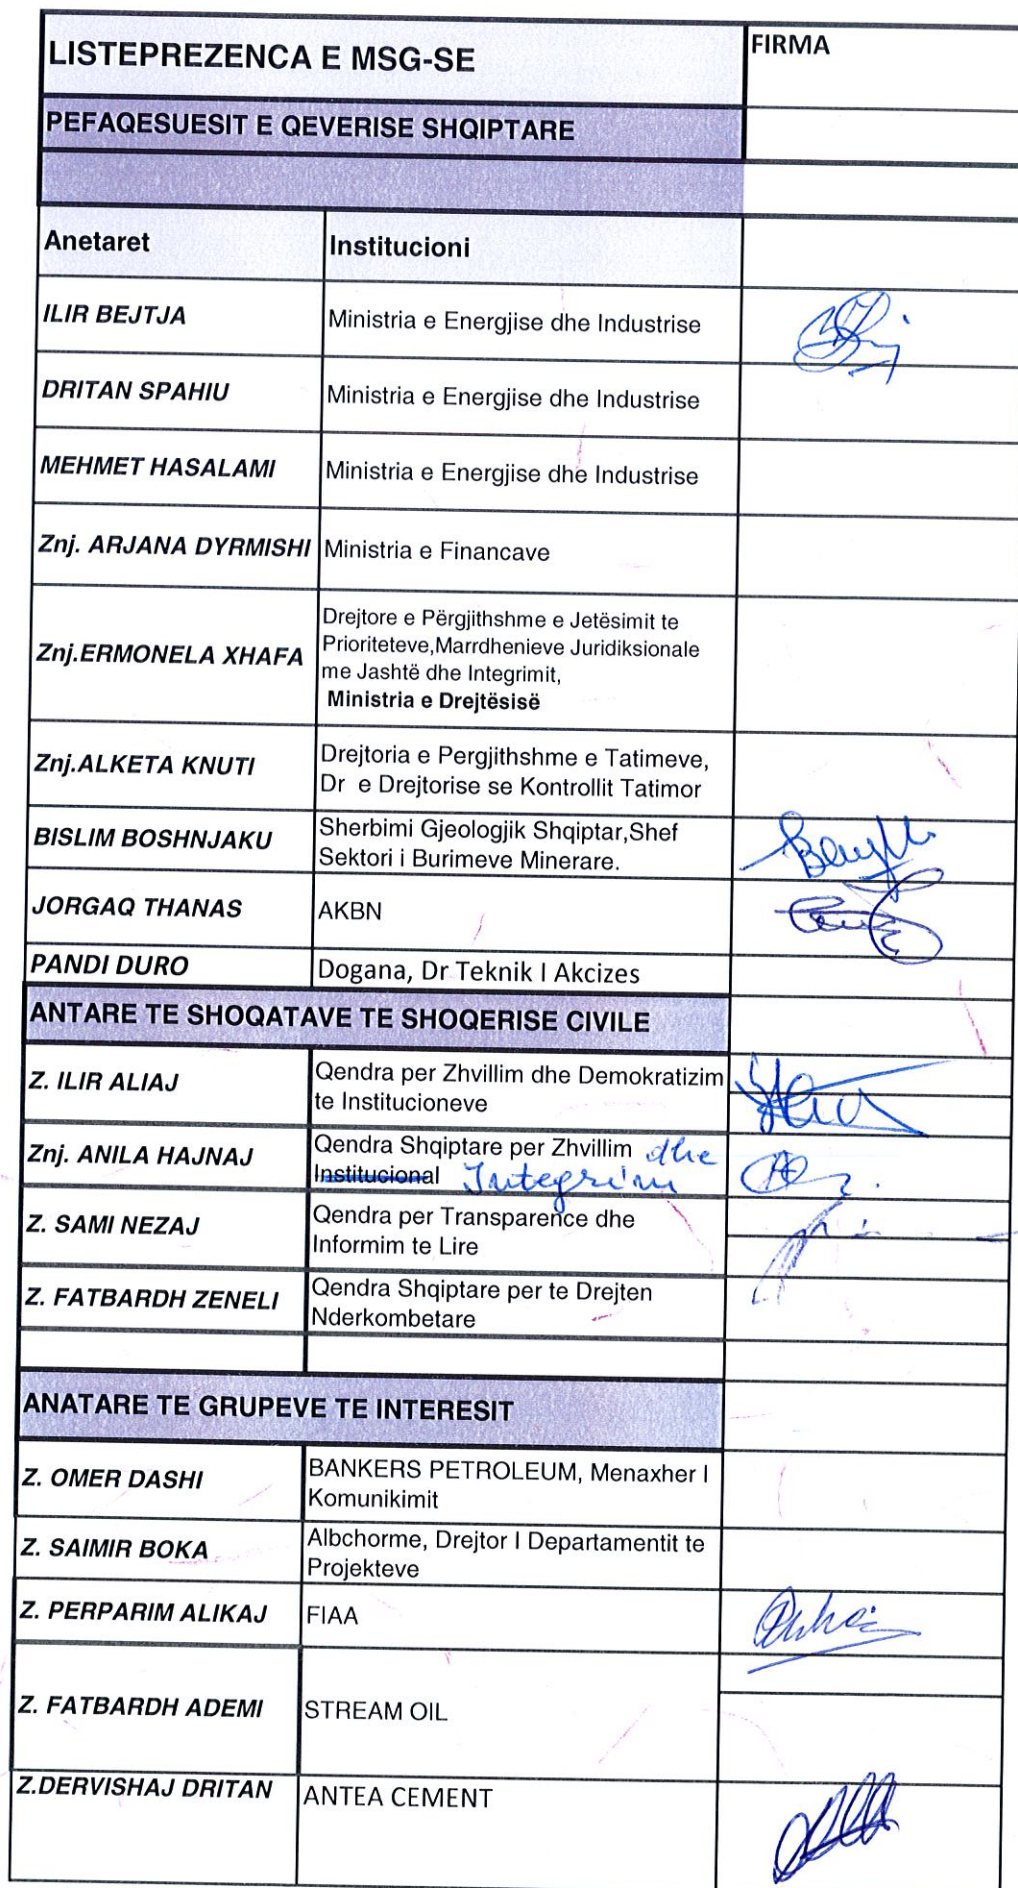 LISTEPREZENCA E MSG-SE
FIRMA
PEFAQESUESIT E QEVERISE SHQIPTARE
Anetaret
Institucioni
ILIR BEJTJA
Ministria e Energjise dhe Industrise
DRITAN SPAHIU
Ministria e Energjise dhe Industrise
MEHMET HASALAMI
Ministria e Energjise dhe Industrise
Znj. ARJANA DYRMISHI
Ministria e Financave
Znj.ERMONELA XHAFA
Drejtore e Përgjithshme e Jetësimit te
Prioriteteve,Marrdhenieve Juridiksionale
me Jashtë dhe Integrimit,
Ministria e Drejtësisë
Znj.ALKETA KNUTI
Drejtoria e Pergjithshme e Tatimeve,
Dr e Drejtorise se Kontrollit Tatimor
BISLIM BOSHNJAKU
Sherbimi Gjeologjik Shqiptar,Shef
Sektori i Burimeve Minerare.
JORGAQ THANAS
AKBN
PANDI DURO
Dogana, Dr Teknik I Akcizes
ANTARE TE SHOQATAVE TE SHOQERISE CIVILE
Z. ILIR ALIAJ
Qendra per Zhvillim dhe Demokratizim
te Institucioneve
Znj. ANILA HAJNAJ
Qendra Shqiptare per Zhvillim dhe
Institucional Integrim
Z. SAMI NEZAJ
Qendra per Transparence dhe
Informim te Lire
Z. FATBARDH ZENELI
Qendra Shqiptare per te Drejten
Nderkombetare
ANATARE TE GRUPEVE TE INTERESIT
Z. OMER DASHI
BANKERS PETROLEUM, Menaxher I
Komunikimit
Z. SAIMIR BOKA
Albchorme, Drejtor I Departamentit te
Projekteve
Z. PERPARIM ALIKAJ
FIAA
Z. FATBARDH ADEMI
STREAM OIL
Z.DERVISHAJ DRITAN
ANTEA CEMENT